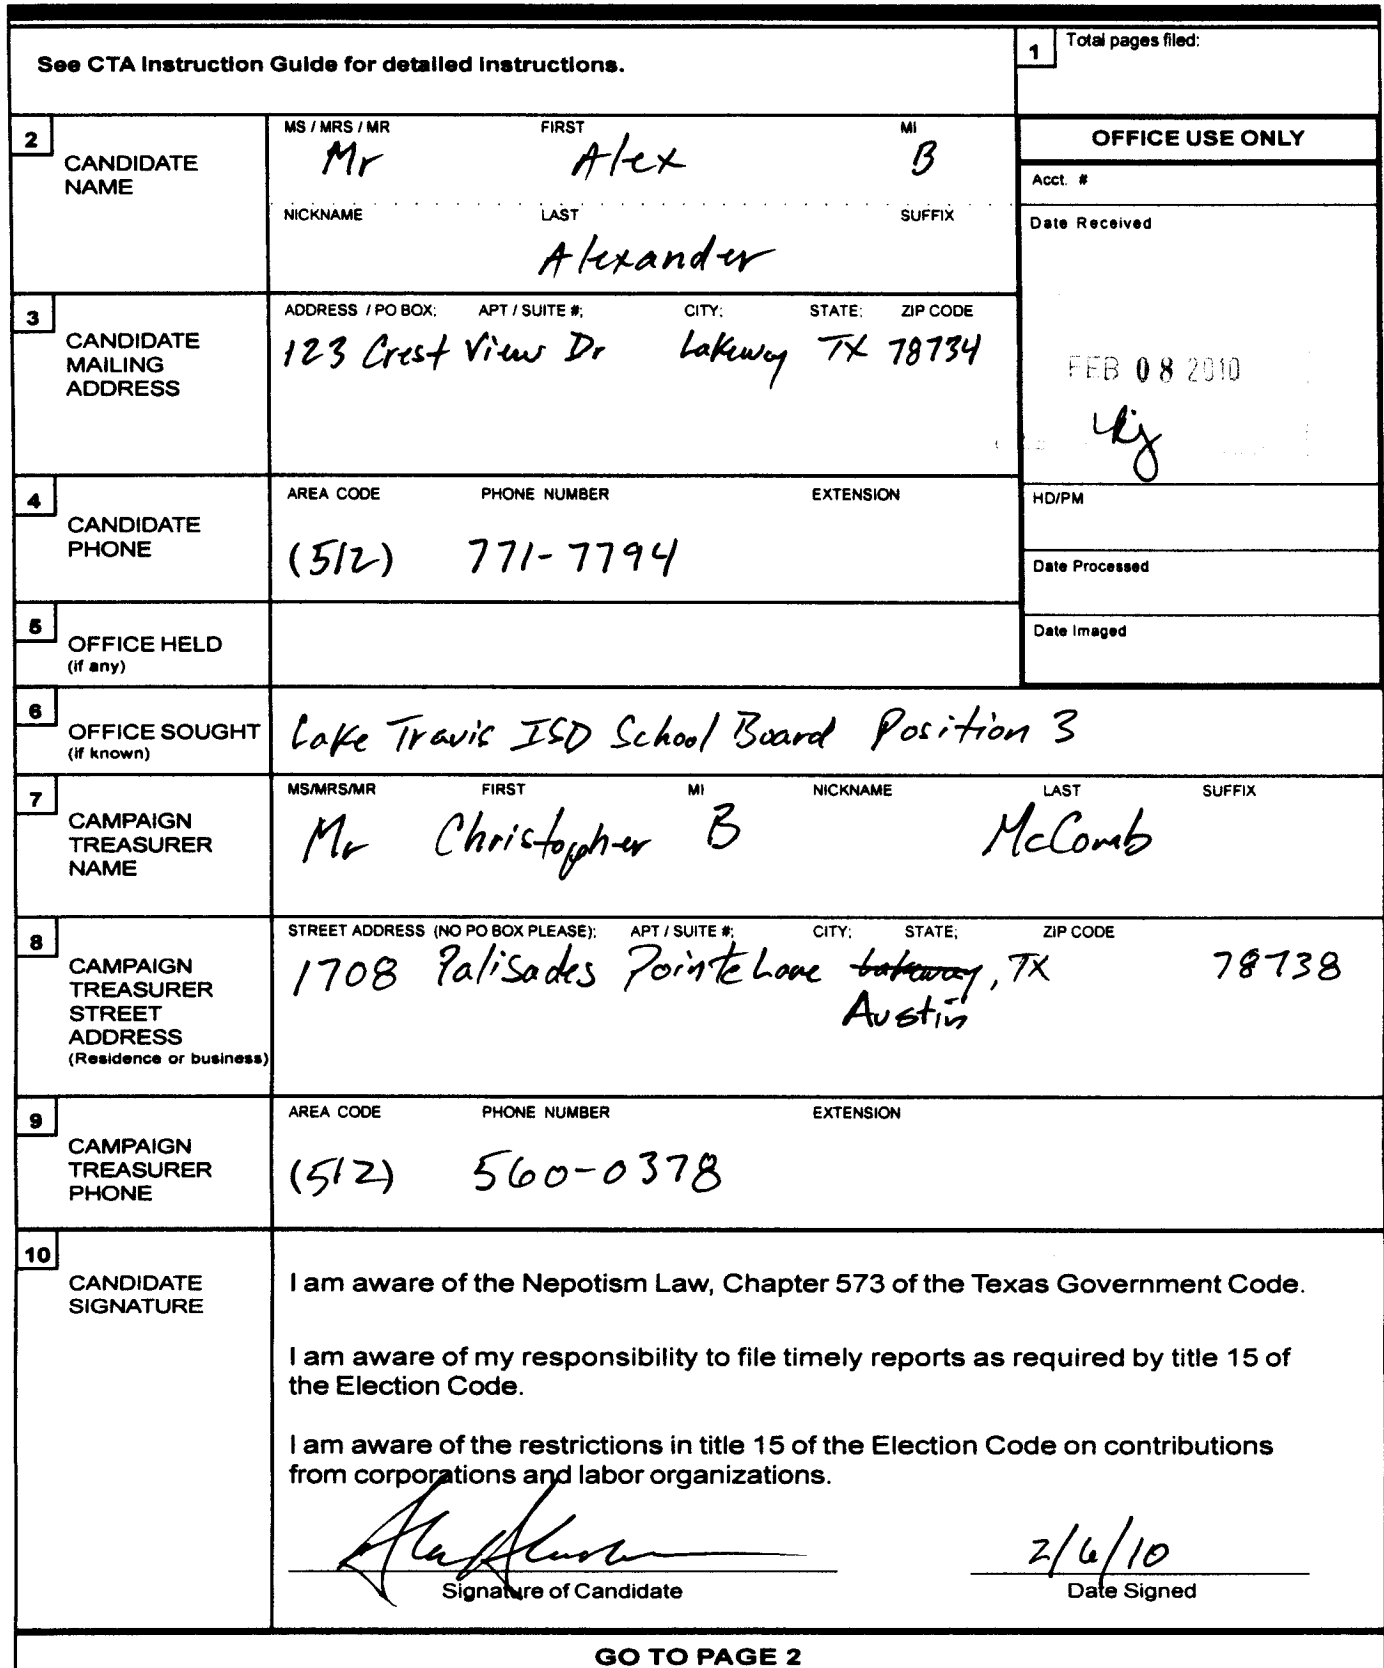 See CTA Instruction Guide for detailed instructions.
1 Total pages filed:
2 CANDIDATE NAME
MS / MRS / MR FIRST MI
Mr Alex B
NICKNAME LAST SUFFIX
Alexander
OFFICE USE ONLY
Acct. #
Date Received
FEB 08 2010
HD/PM
Date Processed
Date Imaged
3 CANDIDATE MAILING ADDRESS
ADDRESS / PO BOX; APT / SUITE #; CITY; STATE; ZIP CODE
123 Crest View Dr Lakeway TX 78734
4 CANDIDATE PHONE
AREA CODE PHONE NUMBER EXTENSION
(512) 771-7794
5 OFFICE HELD
(if any)
6 OFFICE SOUGHT
(if known)
Lake Travis ISD School Board Position 3
7 CAMPAIGN TREASURER NAME
MS/MRS/MR FIRST MI NICKNAME LAST SUFFIX
Mr Christopher B McComb
8 CAMPAIGN TREASURER STREET ADDRESS
(Residence or business)
STREET ADDRESS (NO PO BOX PLEASE); APT / SUITE #; CITY; STATE; ZIP CODE
1708 Palisades Pointe Lane Lakeway, TX 78738
Austin
9 CAMPAIGN TREASURER PHONE
AREA CODE PHONE NUMBER EXTENSION
(512) 560-0378
10 CANDIDATE SIGNATURE
I am aware of the Nepotism Law, Chapter 573 of the Texas Government Code.
I am aware of my responsibility to file timely reports as required by title 15 of
the Election Code.
I am aware of the restrictions in title 15 of the Election Code on contributions
from corporations and labor organizations.
2/6/10
Signature of Candidate Date Signed
GO TO PAGE 2